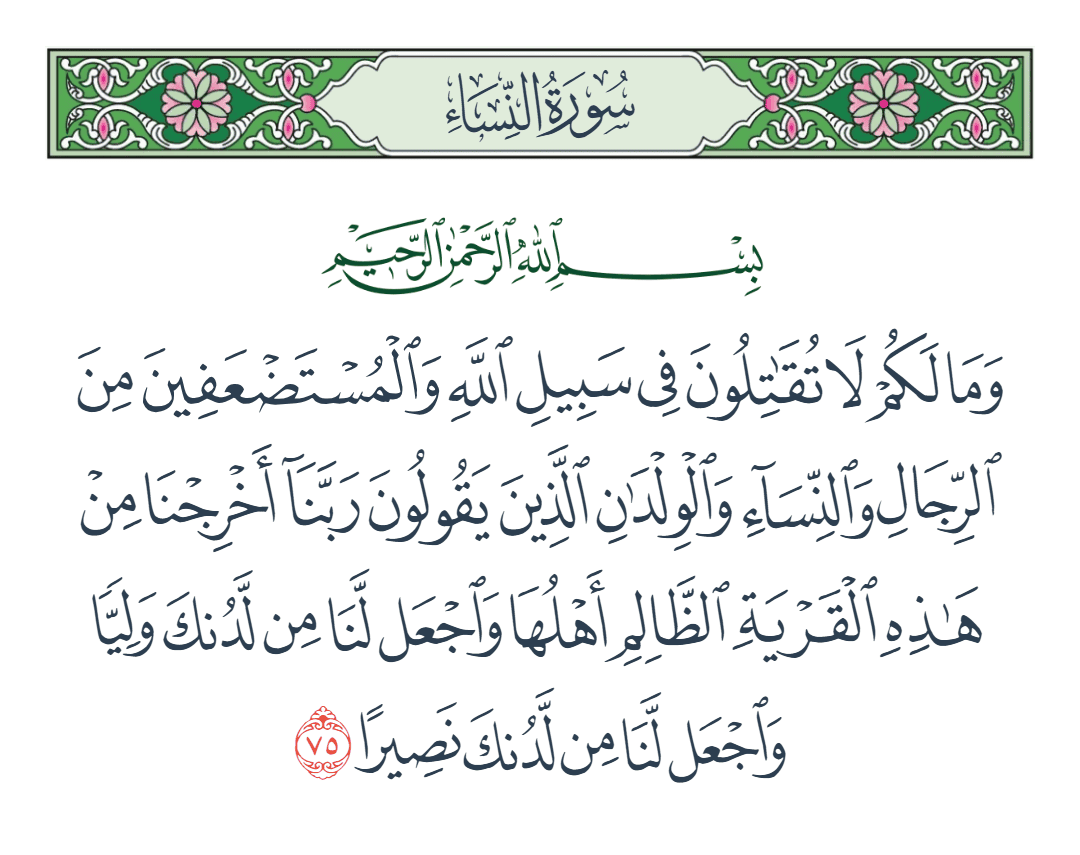 سُورَةُ النِّسَاءِ
بِسْمِ ٱللَّهِ ٱلرَّحْمَٰنِ ٱلرَّحِيمِ
وَمَا لَكُمْ لَا تُقَٰتِلُونَ فِى سَبِيلِ ٱللَّهِ وَٱلْمُسْتَضْعَفِينَ مِنَ
ٱلرِّجَالِ وَٱلنِّسَآءِ وَٱلْوِلْدَٰنِ ٱلَّذِينَ يَقُولُونَ رَبَّنَآ أَخْرِجْنَا مِنْ
هَٰذِهِ ٱلْقَرْيَةِ ٱلظَّالِمِ أَهْلُهَا وَٱجْعَل لَّنَا مِن لَّدُنكَ وَلِيًّا
وَٱجْعَل لَّنَا مِن لَّدُنكَ نَصِيرًا ٧٥